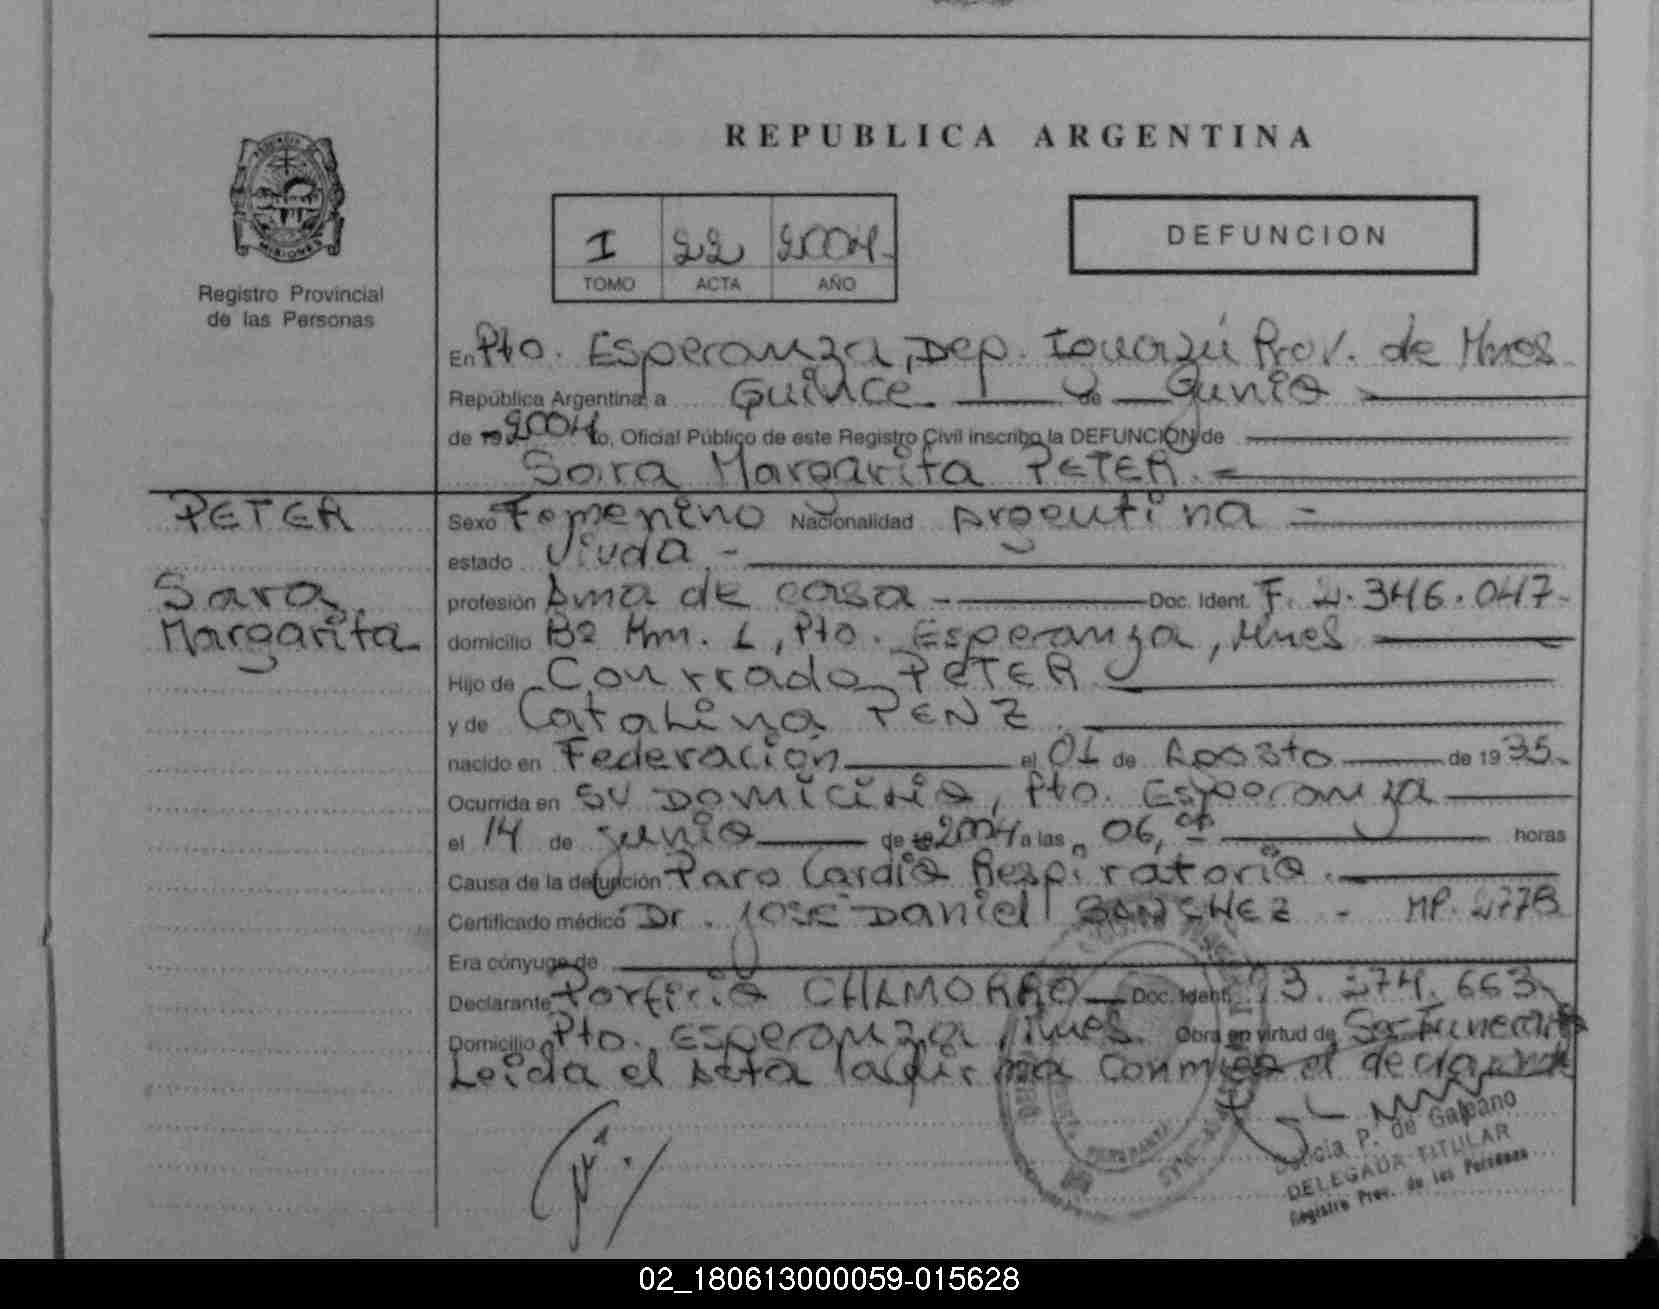 REPUBLICA ARGENTINA
I 22 2004.
TOMO ACTA AÑO
DEFUNCION
MISIONES
Registro Provincial
de las Personas
En Pto. Esperanza, Dep. Iguazú Prov. de Mnes
República Argentina, a Quince de Junio
de 19 2004 yo, Oficial Público de este Registro Civil inscribo la DEFUNCION de
Sara Margarita PETER.
PETER
Sara
Margarita
Sexo Femenino Nacionalidad Argentina
estado Viuda
profesión Ama de casa Doc. Ident. F. 2.346.047
domicilio Bº Mm. L, Pto. Esperanza, Mnes
Hijo de Conrrado PETER
y de Catalina PENZ
nacido en Federación el 01 de Agosto de 1935.
Ocurrida en su Domicilio, Pto. Esperanza
el 14 de junio de 2004 a las 06, horas
Causa de la defunción Paro Cardio Respiratorio.
Certificado médico Dr. José Daniel SANCHEZ - MP. 2778
Era cónyuge de
Declarante Porfirio CHAMORRO Doc. Ident. 13.274.663
Domicilio Pto. Esperanza, Mnes. Obra en virtud de
Leida el Acta la firma conmigo el declarante
P. de Galeano
DELEGADA TITULAR
Registro Prov. de las Personas
02_180613000059-015628